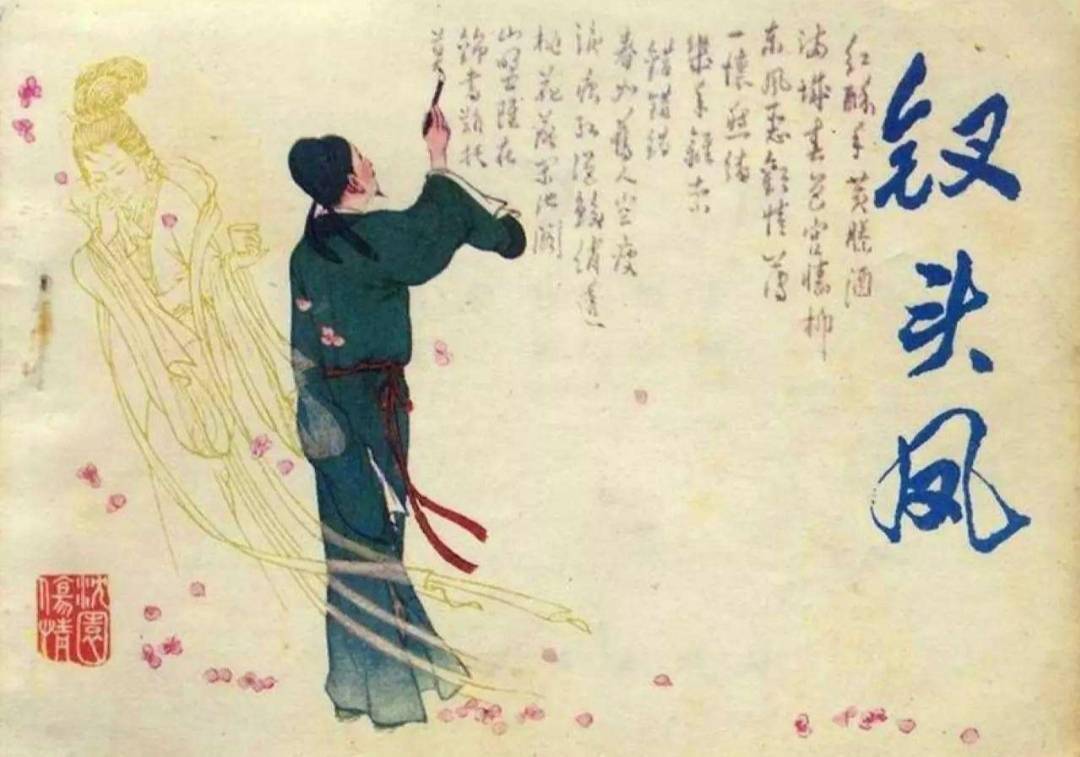 钗头凤
红酥手 黄縢酒
满城春色宫墙柳
东风恶欢情薄
一怀愁绪
几年離索
错错错
春如舊人空瘦
泪痕红浥鲛绡透
桃花落闲池阁
山盟雖在
锦书難托
莫
沈園
傷情